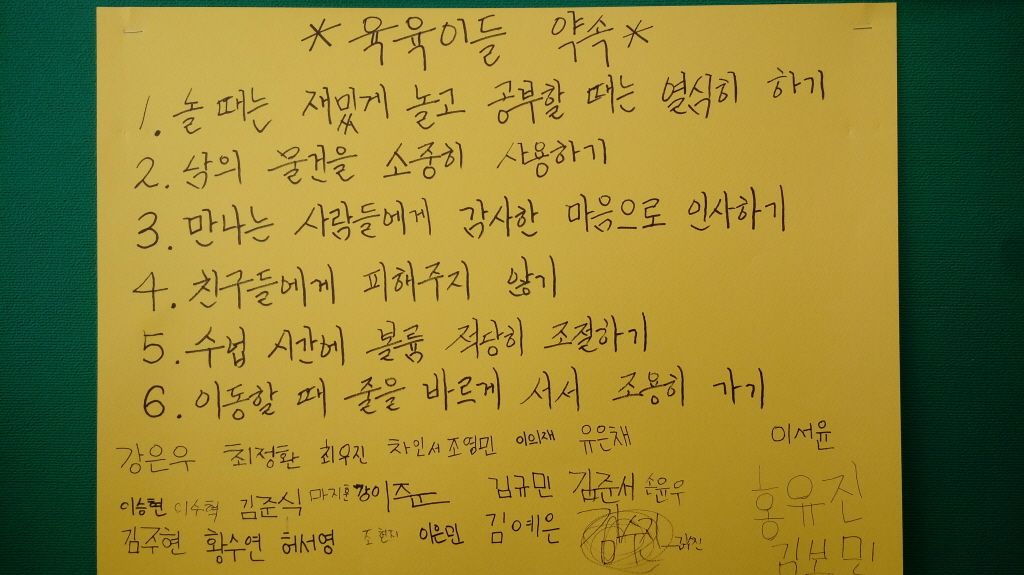 *육육이들 약속*
1. 놀 때는 재밌게 놀고 공부할 때는 열심히 하기
2. 남의 물건을 소중히 사용하기
3. 만나는 사람들에게 감사한 마음으로 인사하기
4. 친구들에게 피해주지 않기
5. 수업 시간에 볼륨 적당히 조절하기
6. 이동할 때 줄을 바르게 서서 조용히 가기
강은우 최정환 최우진 차인서 조영민 이의재 유은채 이서윤
이승현 이수혁 김준식 김규민 김준서 손윤우 홍유진
김주현 황수연 허서영 조현지 이은민 김예은 김수지 김보민